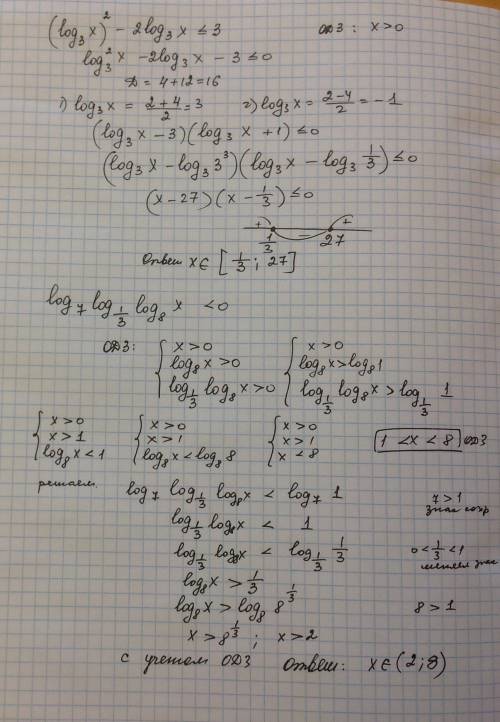 (log₃x)² - 2log₃x ≤ 3 ОДЗ: x>0
log₃²x - 2log₃x - 3 ≤ 0
Д = 4+12=16
1) log₃x = (2+4)/2 = 3 2) log₃x = (2-4)/2 = -1
(log₃x - 3)(log₃x + 1) ≤ 0
(log₃x - log₃3³)(log₃x - log₃ 1/3) ≤ 0
(x - 27)(x - 1/3) ≤ 0
+ - +
1/3 27
Ответ x∈[1/3; 27]
log₇ log_{1/3} log₈ x < 0
ОДЗ: { x>0 { x>0
log₈x>0 log₈x>log₈1
log_{1/3} log₈x>0 log_{1/3} log₈x > log_{1/3} 1
{ x>0 { x>0 { x>0
x>1 x>1 x>1 1<x<8 ОДЗ
log₈x<1 log₈x<log₈8 x<8
решаем. log₇ log_{1/3} log₈x < log₇ 1 7>1
знак сохр
log_{1/3} log₈x < 1
log_{1/3} log₈x < log_{1/3} 1/3 0<1/3<1
меняем знак
log₈x > 1/3
log₈x > log₈ 8^{1/3} 8>1
x > 8^{1/3}; x>2
с учетом ОДЗ Ответ: x∈(2;8)